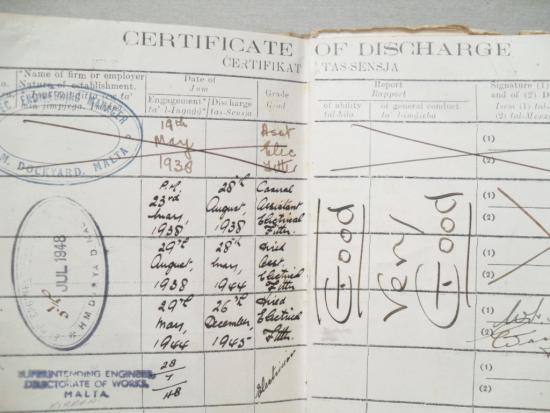 CERTIFICATE OF DISCHARGE
CERTIFIKAT TAS-SENSJA
*Name of firm or employer
Nature of establishment.
Date of
Jum
Engagement* Discharge
tas-sensja
Grade
Grad
Report
Rapport
of ability
tal-hila
of general conduct
ta' l-imġieba
Signature (1)
and of (2)
ENGINEERING MANAGER
H.M. DOCKYARD, MALTA
19th
May
1938
Asst
Elec
Fitter
(1)
(2)
P.M.
23rd
May,
1938
28th
August,
1938
Casual
Assistant
Electrical
Fitter
(1)
(2)
29th
August,
1938
28th
May,
1944
Hired
Asst.
Electrical
Fitter
(1)
(2)
29th
May,
1944
26th
December,
1945
Hired
Electrical
Fitter
(1)
(2)
Good
Very
Good
JUL 1948
H M DOCKYARD
SUPERINTENDING ENGINEER
DIRECTORATE OF WORKS,
MALTA.
28
7
48
Electrician
(1)
(2)